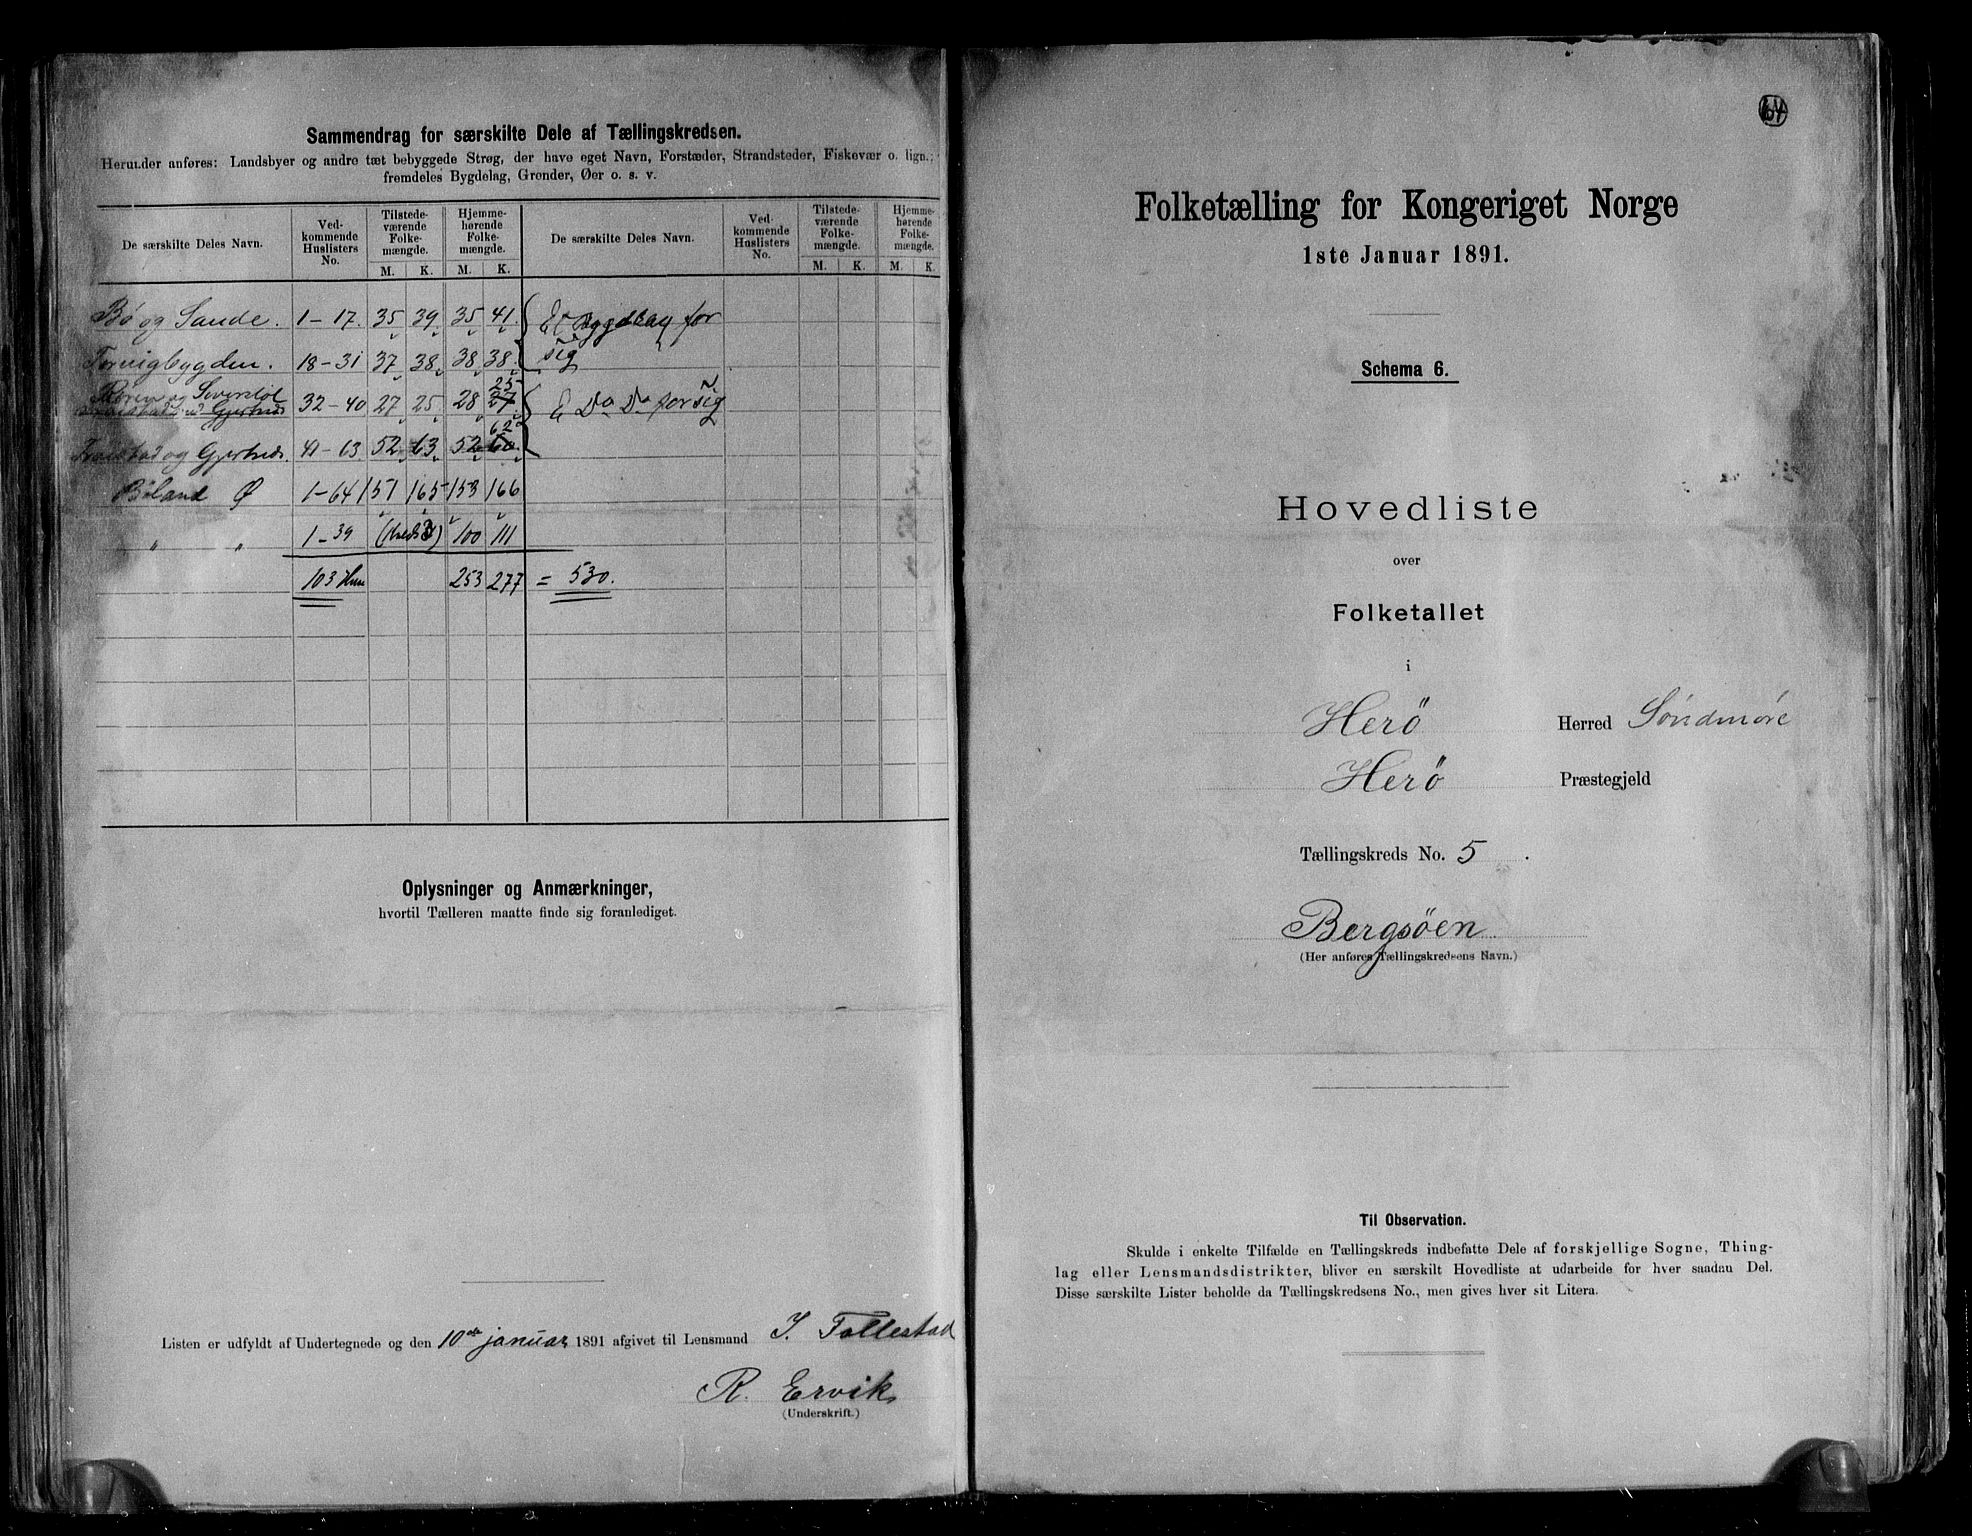 Sammendrag for særskilte Dele af Tællingskredsen.
Herunder anføres: Landsbyer og andre tæt bebyggede Strøg, der have eget Navn, Forstæder, Strandsteder, Fiskevær o. lign.;
fremdeles Bygdelag, Grender, Øer o. s. v.
De særskilte Deles Navn. Ved-kommende Huslisters No. Tilstede-værende Folke-mængde. Hjemme-hørende Folke-mængde. De særskilte Deles Navn. Ved-kommende Huslisters No. Tilstede-værende Folke-mængde. Hjemme-hørende Folke-mængde.
M. K. M. K. M. K. M. K.
Bø og Sande. 1-17. 35 39 35 41. Et Bygdelag for
sig
18-31 37 38 38 38
25
32-40 27 25 28 27 E Do Do for sig
og Gjertnes
62
og Gjertnes. 41-63 52 63 52 60
Bøland Ø 1-64 151 165 153 166
" " 1-39 100 111
103 Hus 253 277 = 530.
Oplysninger og Anmærkninger,
hvortil Tælleren maatte finde sig foranlediget.
Listen er udfyldt af Undertegnede og den 10de januar 1891 afgivet til Lensmand J. Follestad
R. Ervik
(Underskrift.)
64
Folketælling for Kongeriget Norge
1ste Januar 1891.
Schema 6.
Hovedliste
over
Folketallet
i
Herö Herred Söndmöre
Herö Præstegjeld
Tællingskreds No. 5.
Bergsöen
(Her anføres Tællingskredsens Navn.)
Til Observation.
Skulde i enkelte Tilfælde en Tællingskreds indbefatte Dele af forskjellige Sogne, Thing-
lag eller Lensmandsdistrikter, bliver en særskilt Hovedliste at udarbeide for hver saadan Del.
Disse særskilte Lister beholde da Tællingskredsens No., men gives hver sit Litera.